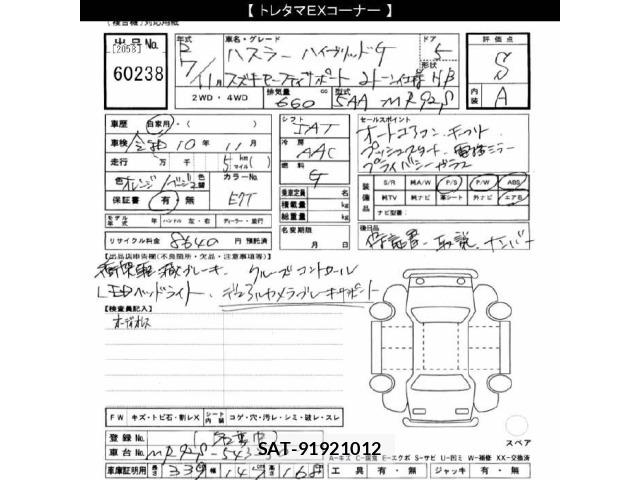 【 トレタマEXコーナー 】
出品No. [2058] 60238
年式 R7/11月 車名・グレード ハスラー ハイブリッドG ドア 5 形状 H/B
スズキセーフティサポート 2トーン仕様
2WD・4WD 排気量 660 cc 型式 5AA MR92S
評価点 S 内装 A
車歴 自家用・( )
車検 令和 10年 11月
走行 万 千 5 km マイル ( )
色 オレンジ/ベージュ 2層 カラーNo. E7T
保証書 有・無
モデル年式 年 ハンドル 左・右 ディーラー・並行
リサイクル料金 8640 円 預託済
シフト 5AT
冷房 AAC
燃料 G
乗車定員 名
積載量 kg
総重量 kg
名変期限 月 日
セールスポイント
オートエアコン・キーフリ
プッシュスタート・電格ミラー
プライバシーガラス
装備品 S/R 純A/W P/S P/W ABS
純TV 純ナビ 革シート 外ナビ エアB
ナビ型番:
後日品
保証書・取説・ナンバー
【出品店申告欄(不良箇所・欠品・注意事項等)】
衝突軽減ブレーキ・クルーズコントロール
LEDヘッドライト・デュアルカメラブレーキサポート
【検査員記入】
オーディオレス
FW キズ・トビ石・割レX シート内装 コゲ・穴・汚レ・シミ・破レ・スレ
スペア
登録No. (名変中)
車台No. MR92S-543
SAT-91921012
車庫証明用 長さ 339 幅 147 高さ 168
工具 有・無 ジャッキ 有・無